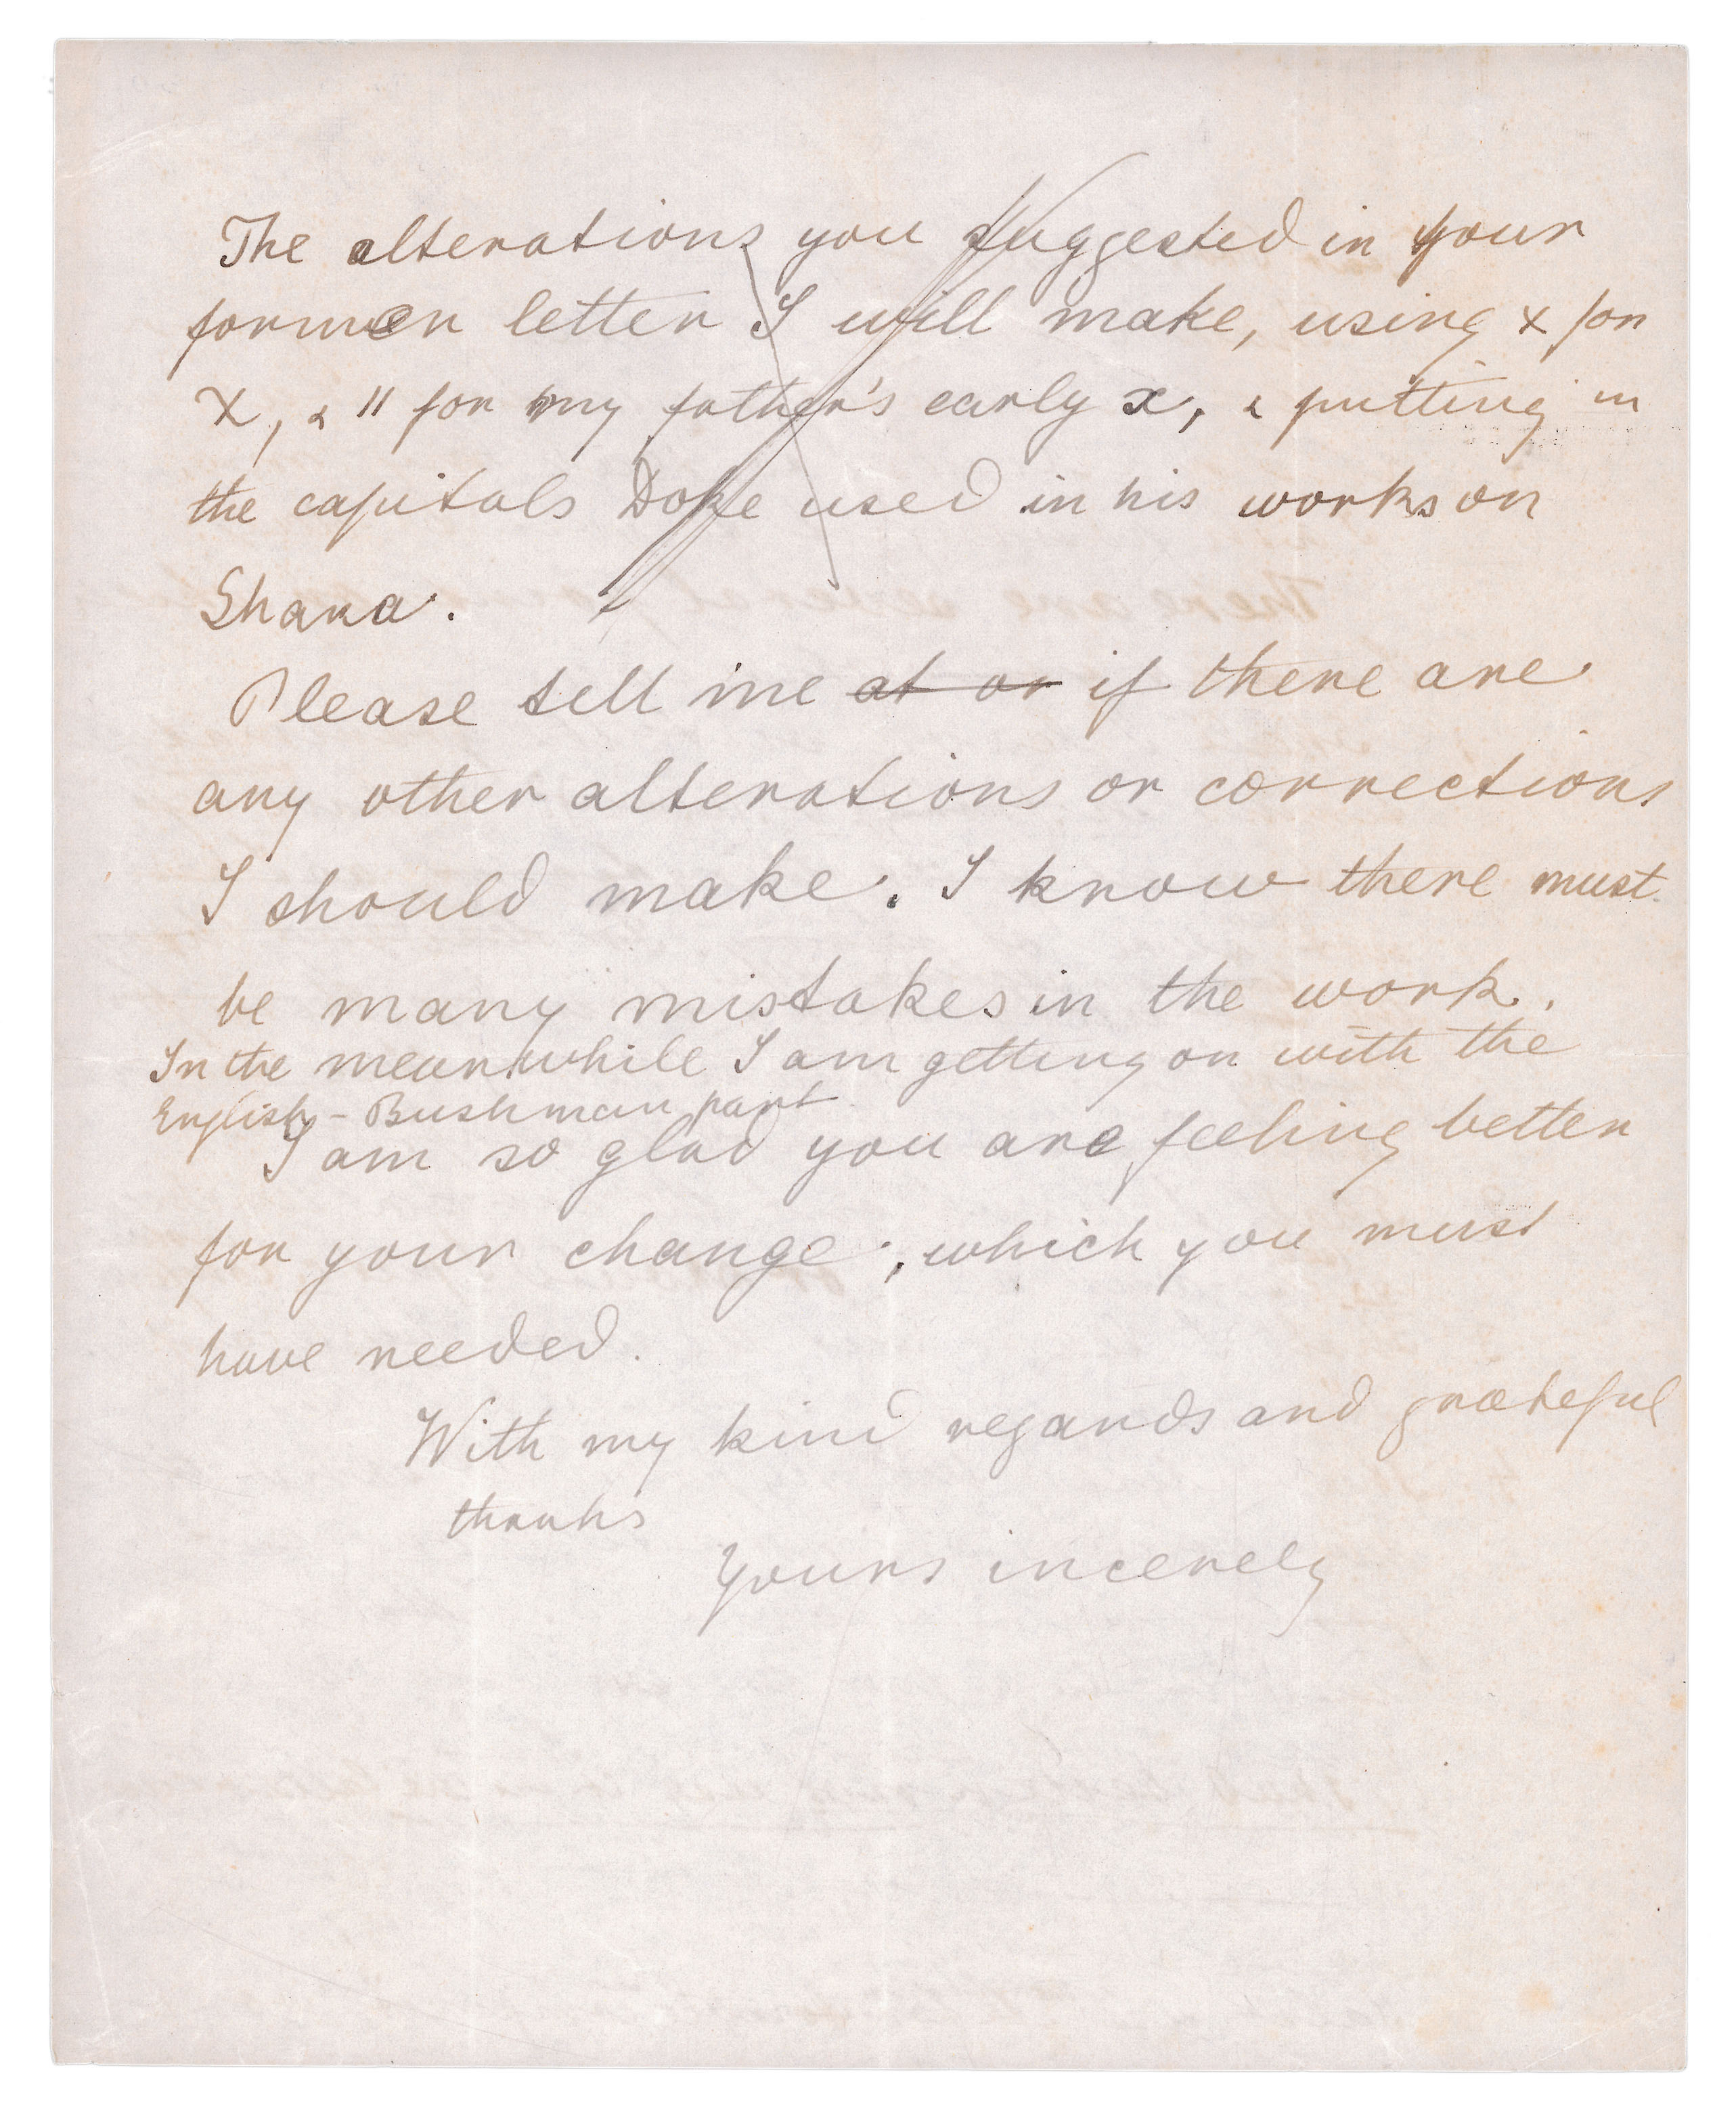 The alterations you suggested in your
former letter I will make, using x for
X, & " for my father's early x, & putting in
the capitals Doke used in his works on
Shana.
Please tell me at or if there are
any other alterations or corrections
I should make. I know there must
be many mistakes in the work.
In the meanwhile I am getting on with the
English - Bushman part
I am so glad you are feeling better
for your change, which you must
have needed.
With my kind regards and grateful
thanks
Yours incerely